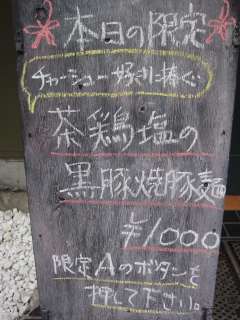 本日の限定
チャーシュー好きに捧ぐ
茶鶏塩の
黒豚焼豚麺
¥1000
限定Aのボタンを
押して下さい。